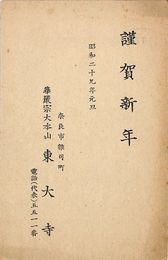 謹賀新年
昭和二十九年元旦
奈良市雑司町
華厳宗大本山
東大寺
電話(代表)五五一一番